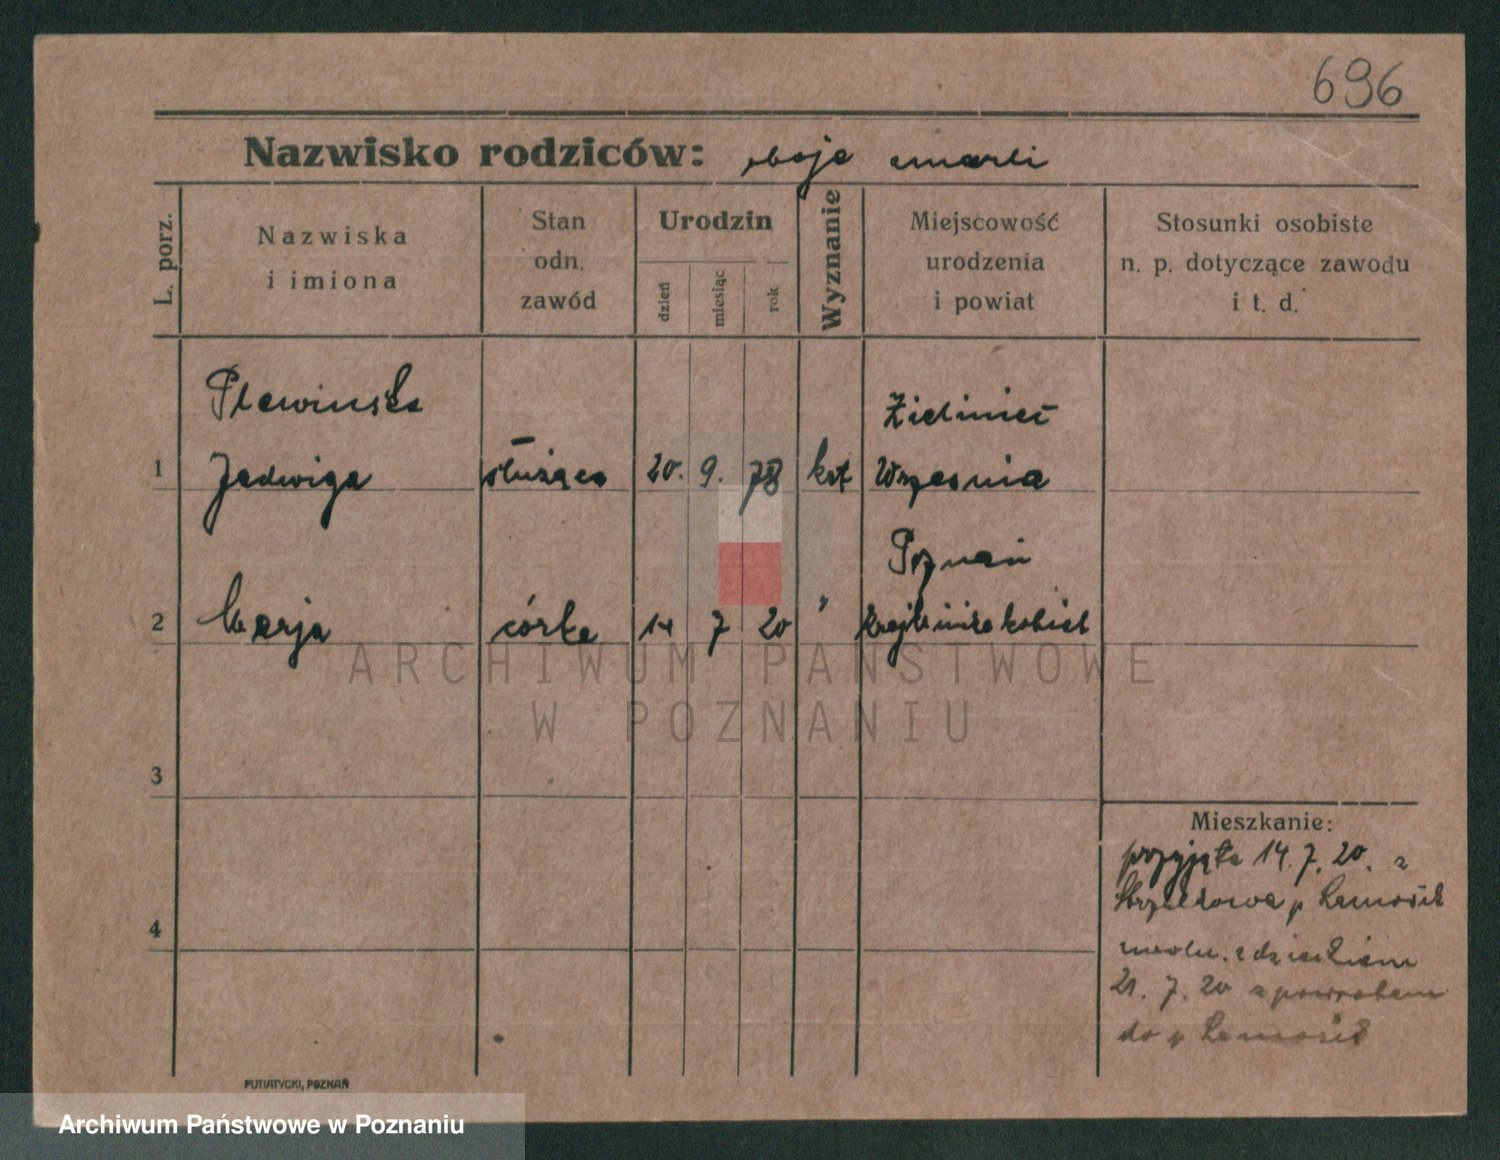 696
Nazwisko rodziców: oboje zmarli
L. porz.
Nazwiska
i imiona
Stan
odn.
zawód
Urodzin
dzień
miesiąc
rok
Wyznanie
Miejscowość
urodzenia
i powiat
Stosunki osobiste
n. p. dotyczące zawodu
i t. d.
Plewinska Zieliniec
1 Jadwiga służąca 20. 9. 78 kat Września
Poznań
2 Marja córka 14 7 20 " kobiet
3
4
Mieszkanie:
przyjęta 14. 7. 20. z
p
zwoln. z dzieckiem
21. 7. 20 z powrotem
do p
PUTIATYCKI, POZNAŃ
ARCHIWUM PAŃSTWOWE
W POZNANIU
Archiwum Państwowe w Poznaniu